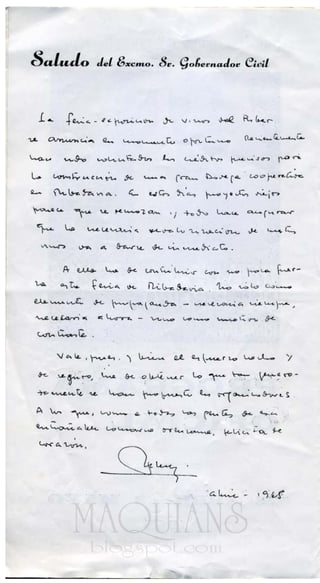 Saludo del Excmo. Sr. Gobernador Civil
La feria-exposición de vinos del Riber
se anuncia en momento oportuno. Recientemente
han sido los créditos precisos para
la construcción de una gran Bodega cooperativa
en Ribadavia. En estos días proyectos viejos
parece que se remozan y todo hace augurar
que la necesaria revalorización de
vinos va a darse de inmediato.
A ella ha de contribuir con no poca fuer-
za esta feria de Ribadavia. No sólo como
elemento de propaganda - necesaria siempre,
necesaria ahora - sino como de
contraste.
Vale, pues, y bien el esfuerzo hecho y
de seguro, ha de obtener lo que tan genero-
samente se han propuesto los organizadores
A los que, como a todas las gentes de esa
entrañable comarca orensana, felicita de
corazón,
abril - 1968
MAQUIANS
blogspot.com